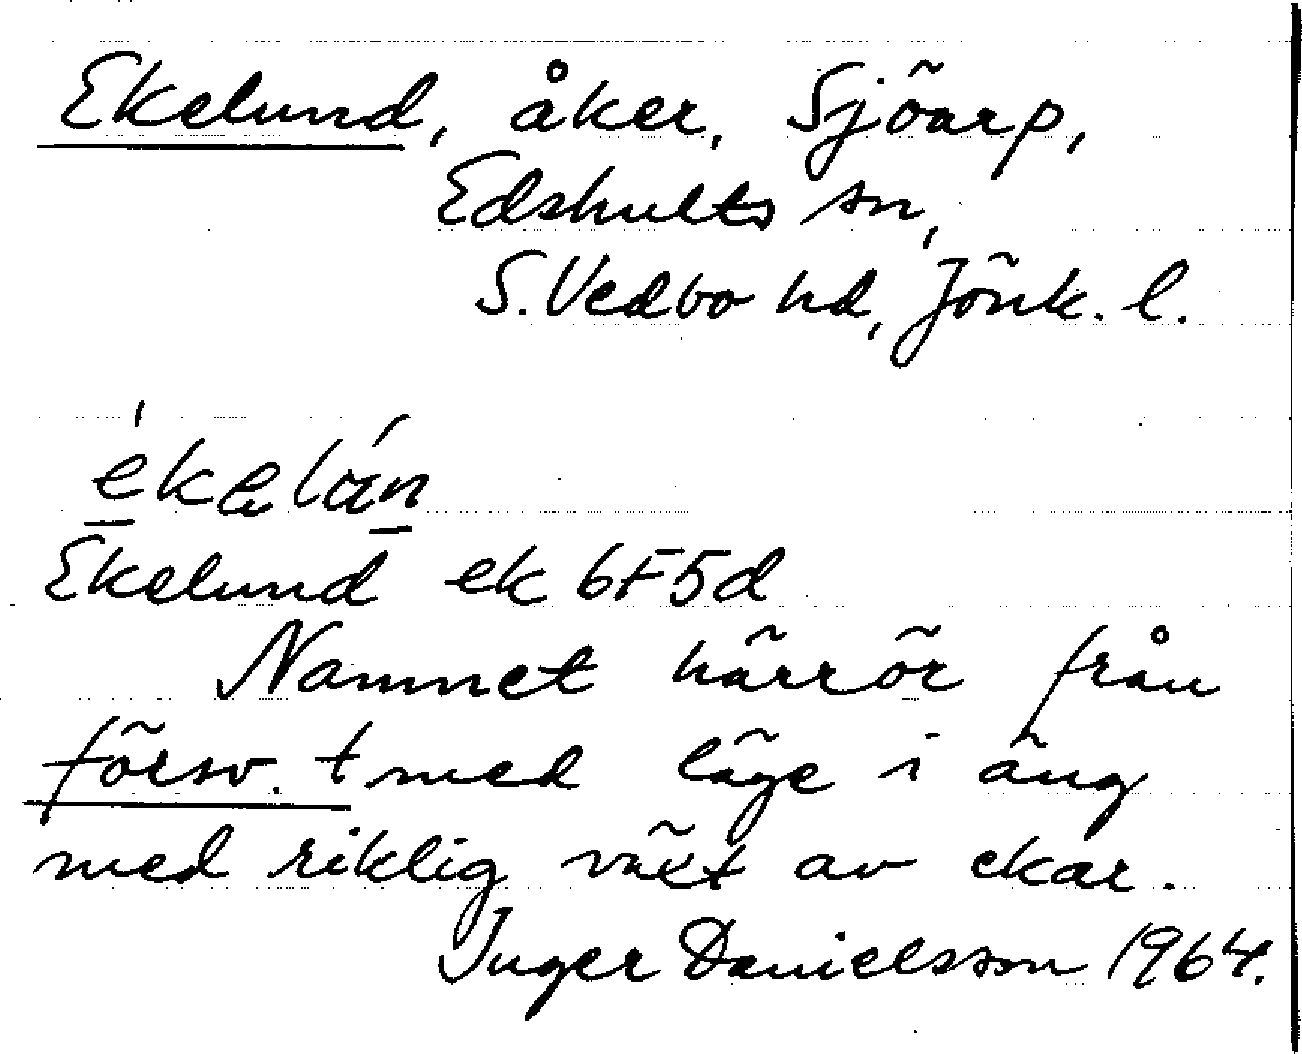 Ekelund, åker, Sjöarp,
Edshults sn,
S. Vedbo hd, Jönk. l.
ékelún
Ekelund ek 6F5d
Namnet härrör från
försv. t med läge i äng
med riklig växt av ekar.
Inger Danielsson 1964.